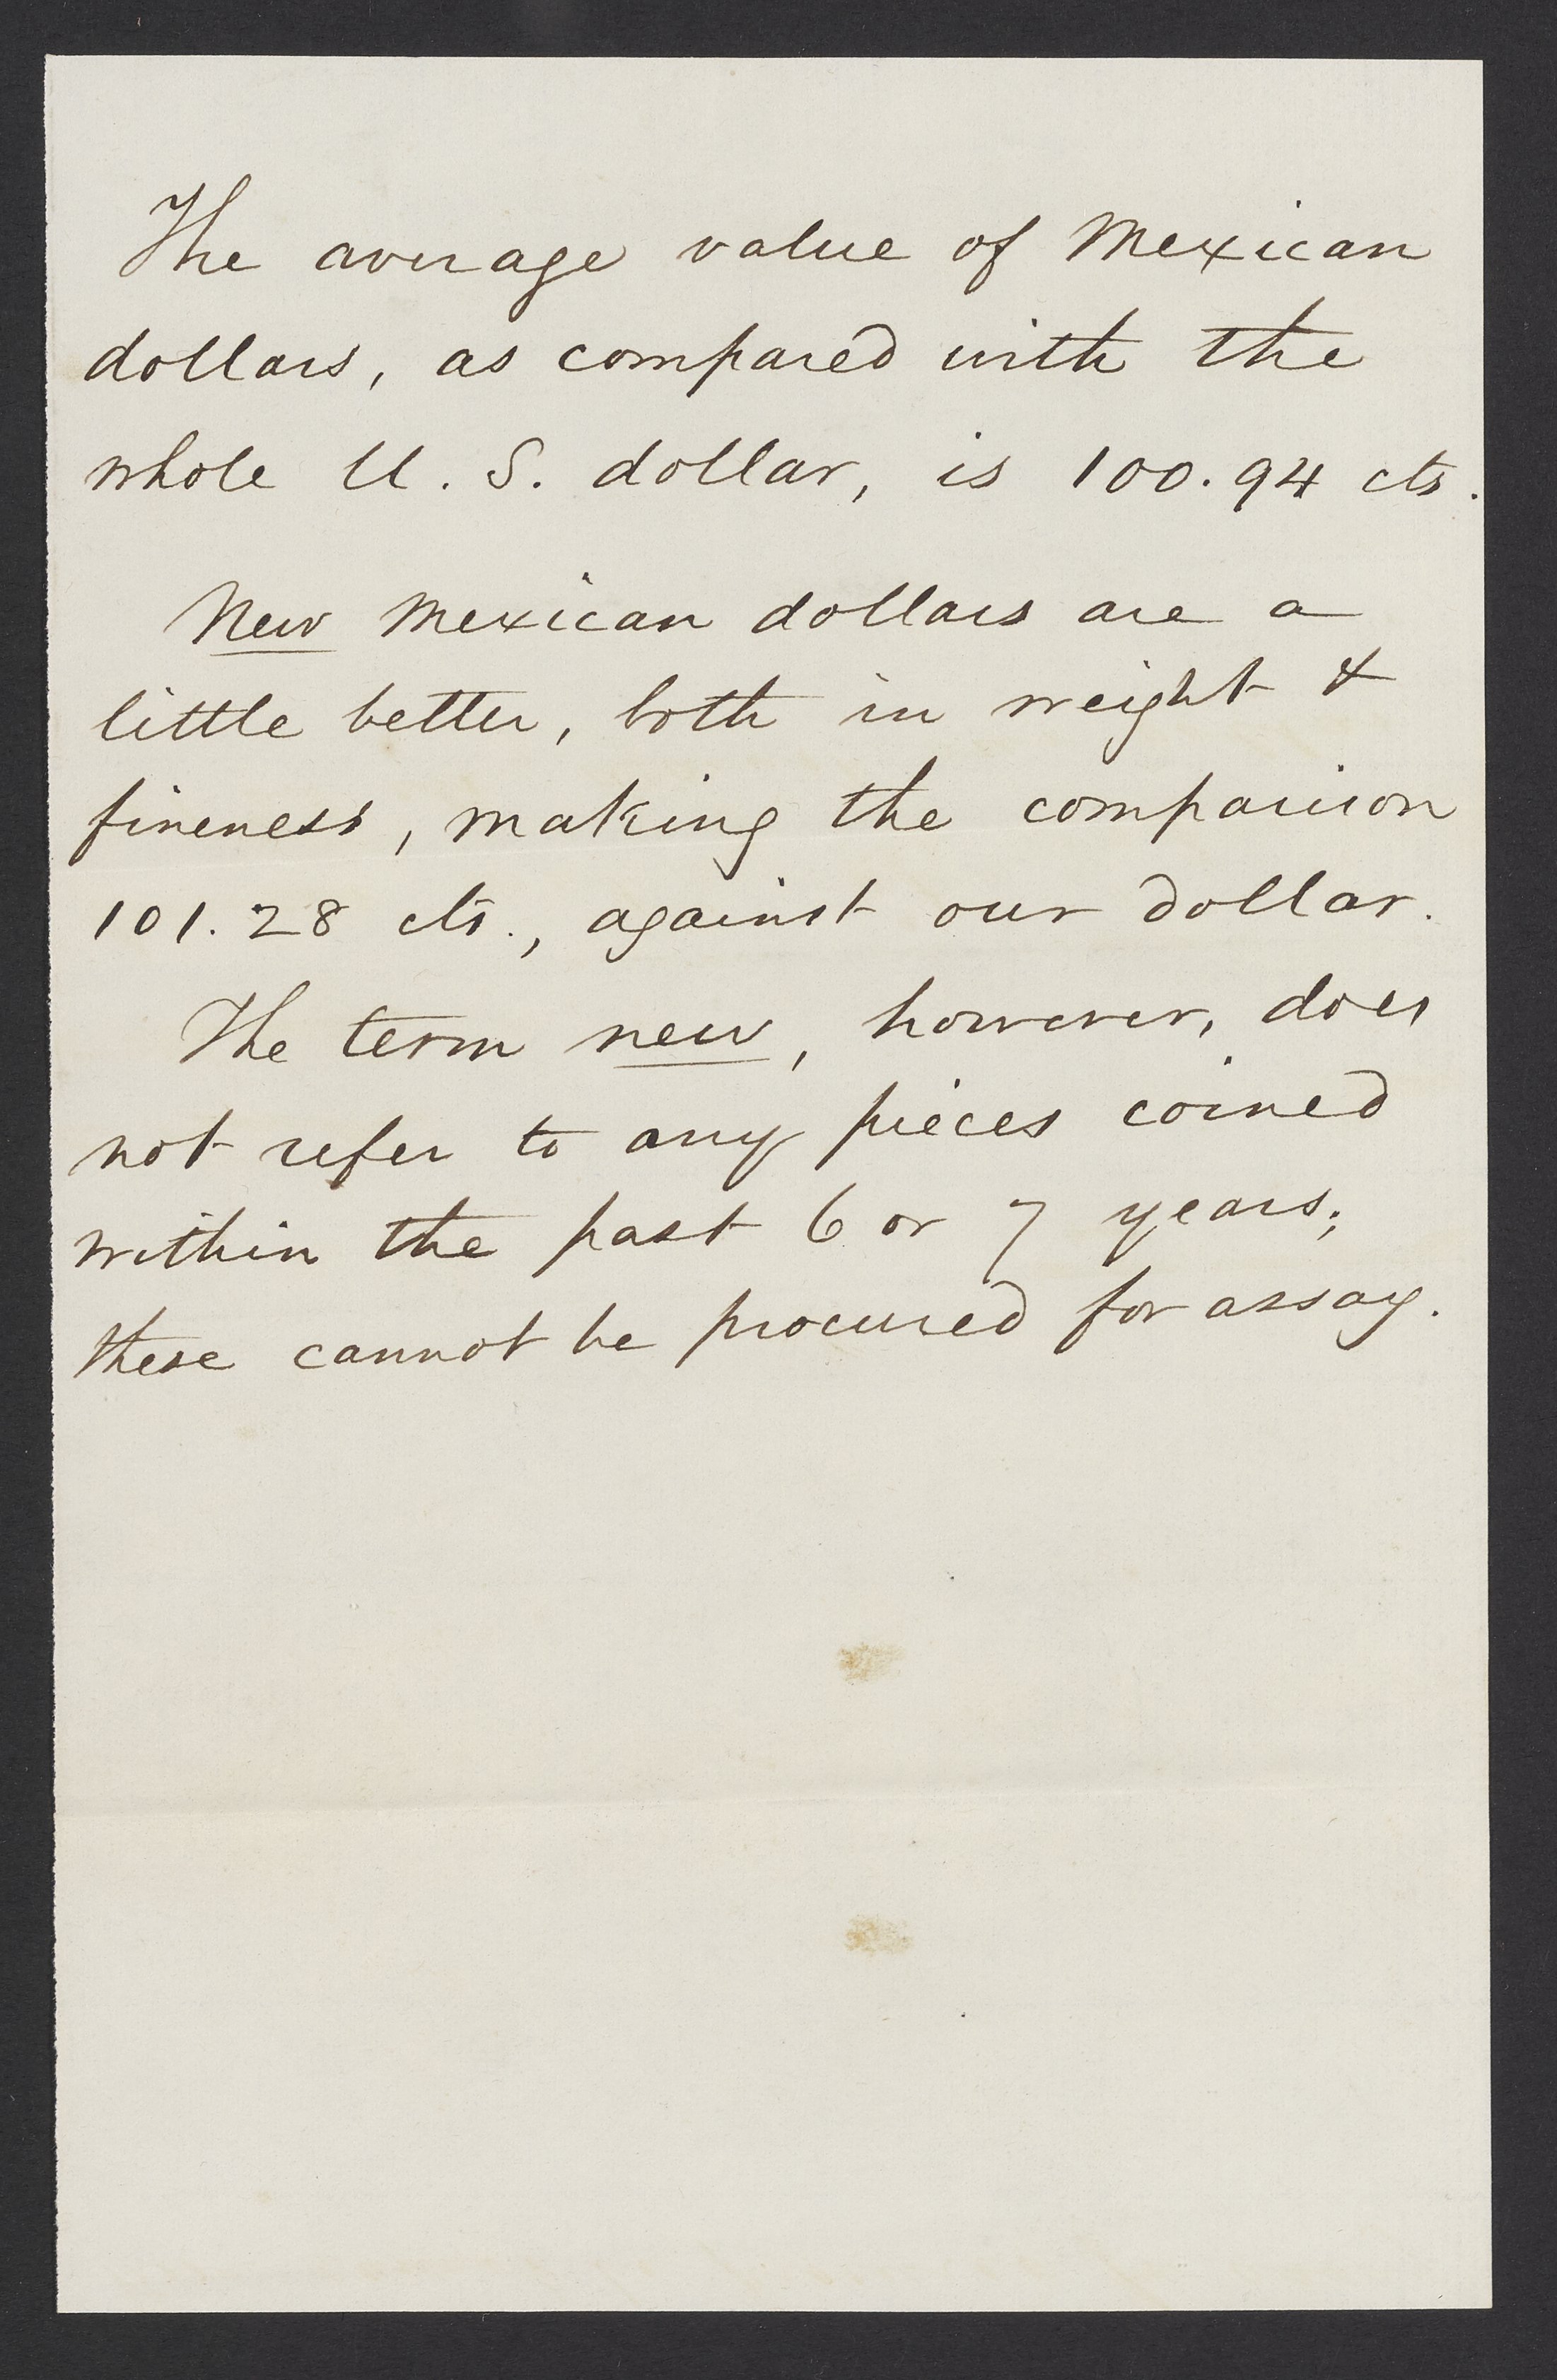 The average value of Mexican
dollars, as compared with the
whole U. S. dollar, is 100.94 cts.
New Mexican dollars are a
little better, both in weight &
fineness, making the comparison
101.28 cts., against our dollar.
The term new, however, does
not refer to any pieces coined
within the past 6 or 7 years;
these cannot be procured for assay.